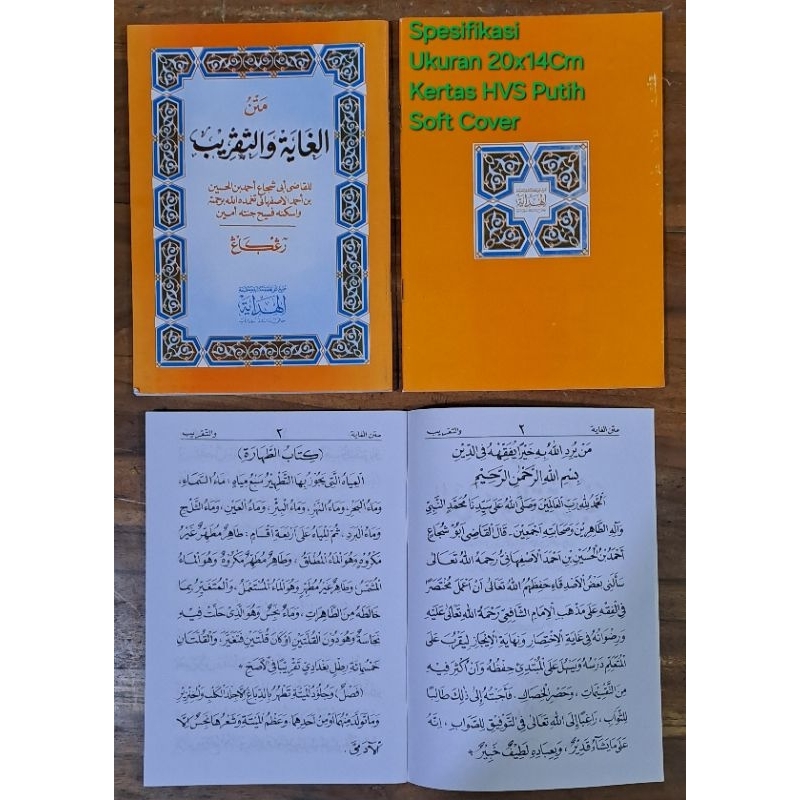 مَتْنُ
الغَايَة وَالتَّقْرِيب
للقاضى أبى شجاع أحمد بن الحسين
بن أحمد الاصفهانى تغمده الله برحمته
واسكنه فسيح جنته أمين
الهداية
Spesifikasi
Ukuran 20x14Cm
Kertas HVS Putih
Soft Cover
الهداية
متن الغاية ٢ والتقريب
مَنْ يُرِدِ اللهُ بِهِ خَيْرًا يُفَقِّهْهُ فِى الدِّيْنِ
بِسْمِ اللهِ الرَّحْمٰنِ الرَّحِيْمِ
اَلْحَمْدُ لِلّٰهِ رَبِّ الْعَالَمِيْنَ وَصَلَّى اللهُ عَلَى سَيِّدِنَا مُحَمَّدٍ النَّبِيِّ
وَآلِهِ الطَّاهِرِيْنَ وَصَحَابَتِهِ اَجْمَعِيْنَ . قَالَ الْقَاضِى اَبُوْ شُجَاعٍ
اَحْمَدُ بْنُ الْحُسَيْنِ بْنِ اَحْمَدَ الْاَصْفِهَانِيُّ رَحِمَهُ اللهُ تَعَالَى
سَأَلَنِى بَعْضُ الْاَصْدِقَاءِ حَفِظَهُمُ اللهُ تَعَالَى اَنْ اَعْمَلَ مُخْتَصَرًا
فِى الْفِقْهِ عَلَى مَذْهَبِ الْاِمَامِ الشَّافِعِيِّ رَحْمَةُ اللهِ تَعَالَى عَلَيْهِ
وَرِضْوَانُهُ فِى غَايَةِ الْاِخْتِصَارِ وَنِهَايَةِ الْاِيْجَازِ لِيَقْرُبَ عَلَى
الْمُتَعَلِّمِ دَرْسُهُ وَيَسْهُلَ عَلَى الْمُبْتَدِئِ حِفْظُهُ وَاَنْ اُكْثِرَ فِيْهِ
مِنَ التَّقْسِيْمَاتِ ، وَحَصْرِ الْخِصَالِ . فَاَجَبْتُهُ اِلَى ذٰلِكَ طَالِبًا
لِلثَّوَابِ ، رَاغِبًا اِلَى اللهِ تَعَالَى فِى التَّوْفِيْقِ لِلصَّوَابِ ، اِنَّهُ
عَلَى مَا يَشَاءُ قَدِيْرٌ ، وَبِعِبَادِهِ لَطِيْفٌ خَبِيْرٌ .
متن الغاية ٣ والتقريب
(كِتَابُ الطَّهَارَةِ)
اَلْمِيَاهُ الَّتِى يَجُوْزُ بِهَا التَّطْهِيْرُ سَبْعُ مِيَاهٍ ، مَاءُ السَّمَاءِ ،
وَمَاءُ الْبَحْرِ ، وَمَاءُ النَّهْرِ ، وَمَاءُ الْبِئْرِ ، وَمَاءُ الْعَيْنِ ، وَمَاءُ الثَّلْجِ
وَمَاءُ الْبَرَدِ . ثُمَّ الْمِيَاهُ عَلَى اَرْبَعَةِ اَقْسَامٍ : طَاهِرٌ مُطَهِّرٌ غَيْرُ
مَكْرُوْهٍ وَهُوَ الْمَاءُ الْمُطْلَقُ ، وَطَاهِرٌ مُطَهِّرٌ مَكْرُوْهٌ وَهُوَ الْمَاءُ
الْمُشَمَّسُ ، وَطَاهِرٌ غَيْرُ مُطَهِّرٍ وَهُوَ الْمَاءُ الْمُسْتَعْمَلُ ، وَالْمُتَغَيِّرُ بِمَا
خَالَطَهُ مِنَ الطَّاهِرَاتِ ، وَمَاءٌ نَجِسٌ وَهُوَ الَّذِى حَلَّتْ فِيْهِ
نَجَاسَةٌ وَهُوَ دُوْنَ الْقُلَّتَيْنِ اَوْ كَانَ قُلَّتَيْنِ فَتَغَيَّرَ ، وَالْقُلَّتَانِ
خَمْسُمِائَةِ رِطْلٍ بَغْدَادِيٍّ تَقْرِيْبًا فِى الْاَصَحِّ .
(فَصْلٌ) وَجُلُوْدُ الْمَيْتَةِ تَطْهُرُ بِالدِّبَاغِ اِلَّا جِلْدَ الْكَلْبِ وَالْخِنْزِيْرِ
وَمَا تَوَلَّدَ مِنْهُمَا اَوْ مِنْ اَحَدِهِمَا ، وَعَظْمُ الْمَيْتَةِ وَشَعْرُهَا نَجِسٌ اِلَّا
الْآدَمِيَّ .